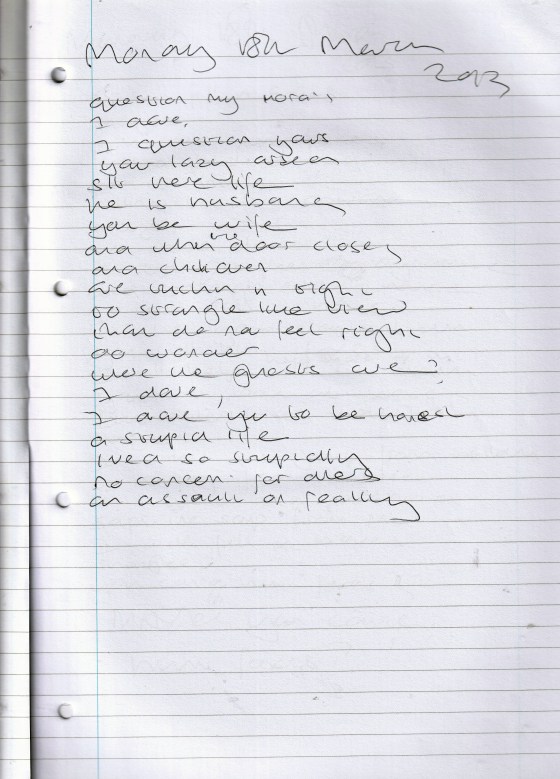 Monday 18th March
2013
question my morals
I dare,
I question yours
your lazy
sit here life
he is husband
you be wife
and when the door closes
and click over
are within n right
to strangle like view
that do not feel right
do wonder
were the ghosts are?
I dare,
I dare you to be honest
a stupid life
lived so stupidly
no concern for others
an assault on reality